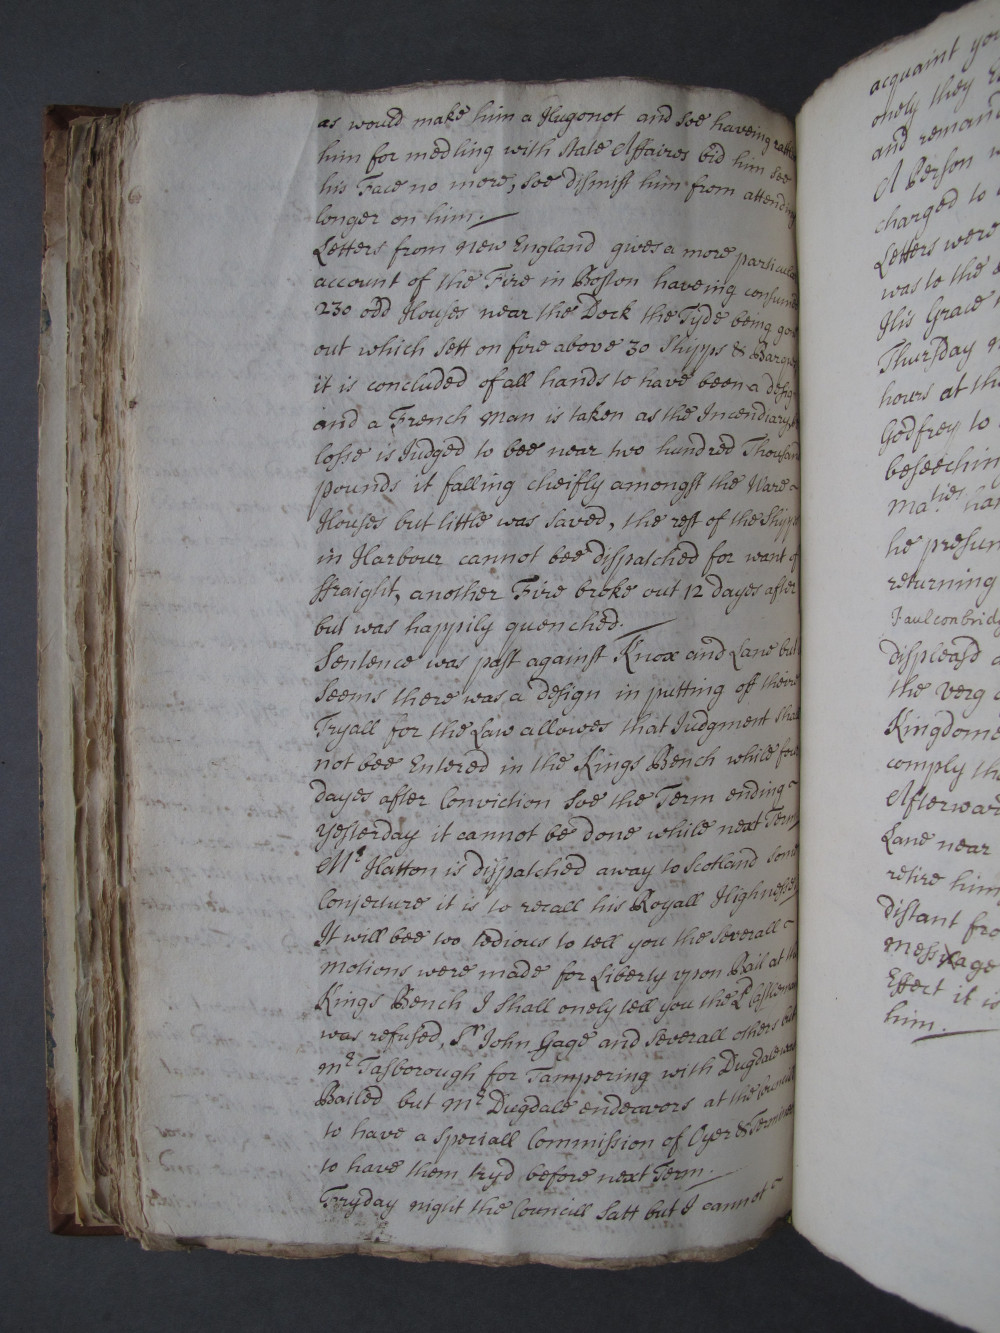 as would make him a Hugonot and soe haveing rattled
him for medling with State Affaires bid him see
his Face no more, soe dismist him from attending
longer on him.
Letters from New England gives a more particular
account of the Fire in Boston haveing consumed
230 odd Houses near the Dock the Tyde being gon
out which sett on fire above 30 Shipps & Barques
it is concluded of all hands to have been a designe
and a French man is taken as the Incendiary,
losse is Judged to bee near two hundred Thousand
pounds it falling cheifly amongst the Ware
Houses but little was saved, the rest of the Shipps
in Harbour cannot bee dispatched for want of
ffraight, another Fire broke out 12 dayes after
but was happily quenched.
Sentence was past against Knox and Lane but
seems there was a design in putting off theire
Tryall for the Law allowes that Judgment shall
not bee Entered in the Kings Bench while four
dayes after Conviction soe the Term ending
yesterday it cannot be done while next Term
Mr. Hatton is dispatched away to Scotland some
Conjecture it is to recall his Royall Highnesse
It will bee too tedious to tell you the severall
motions were made for Liberty vpon Bail at the
Kings Bench I shall onely tell you the Ld. Castlemain
was refused, Sr. John Gage and severall others but
mr. Tasborough for Tampering with Dugdale was
Bailed but mr. Dugdale endeavors at the Councill
to have a speciall Commission of Oyer & Terminer
to have them tryd before next Term.
Fryday night the Councill satt but I cannot
acquaint you
onely they
and remand
A Person
charged to
Letters were
was to the
His Grace
Thursday
hours at the
Godfrey to
beseeching
Maties. ha
he presum
returning
Faulconbridg
displeasd
the verg
Kingdome
comply th
Afterwar
Lane near
retire him
distant fro
message
Effect it is
him.